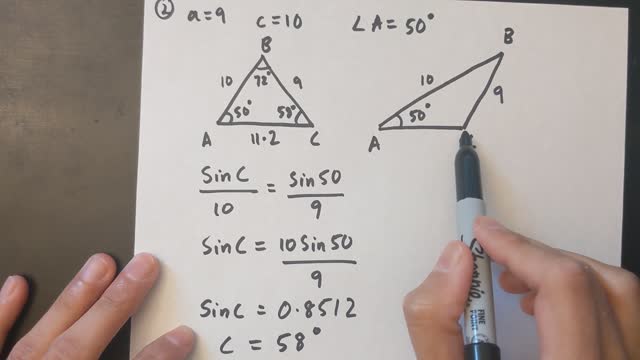 ② a=9 c=10 ∠A=50°
B
10 72° 9
50° 58°
A 11.2 C
B
10
9
50°
A
SinC/10 = Sin50/9
SinC = 10Sin50/9
SinC = 0.8512
C = 58°
Sharpie
FINE
POINT